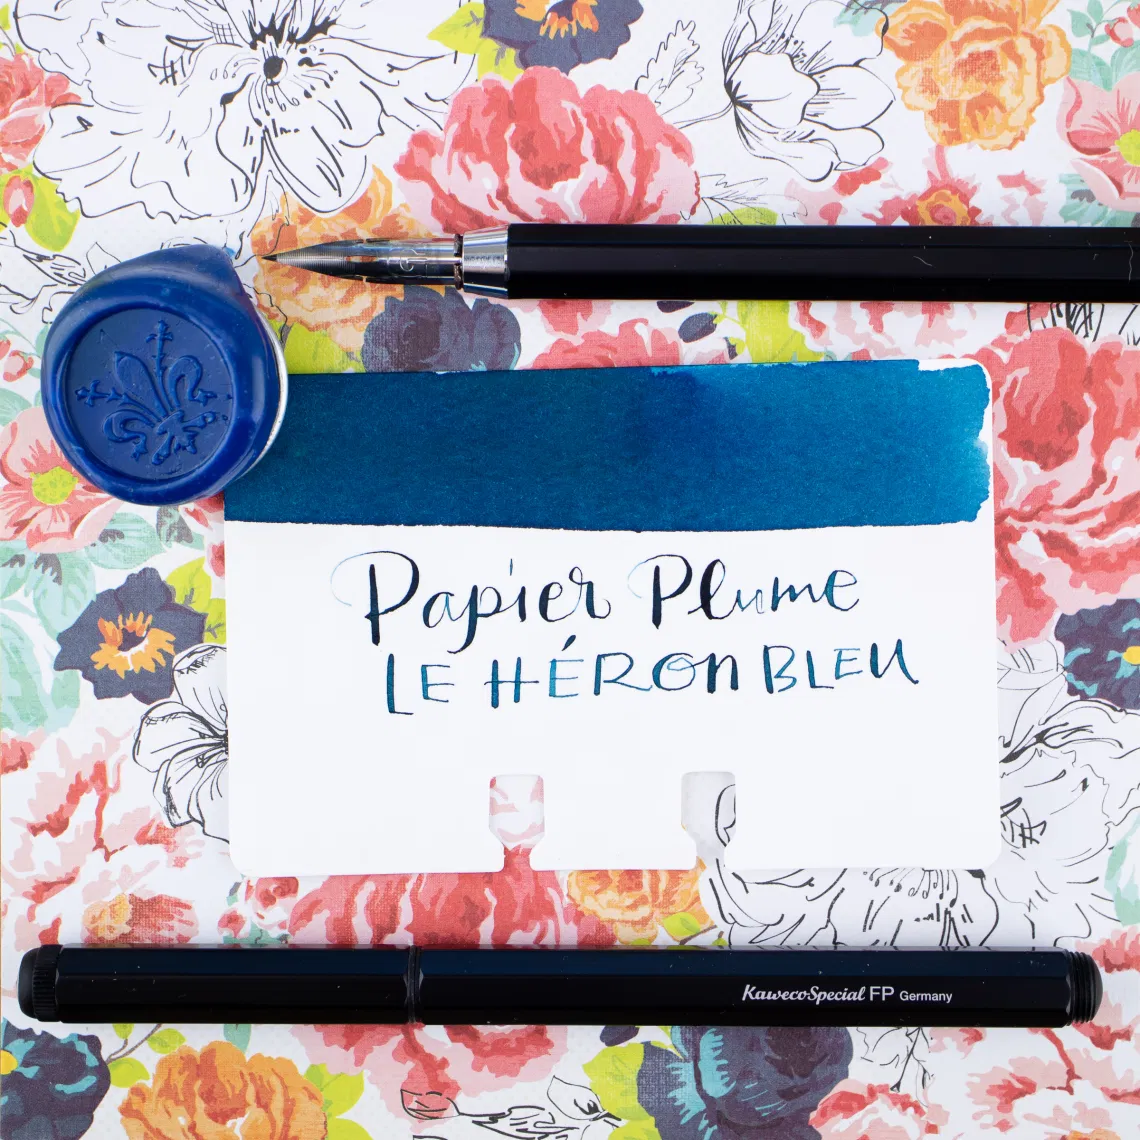 Papier Plume
LE HÉRON BLEU
KawecoSpecial FP Germany